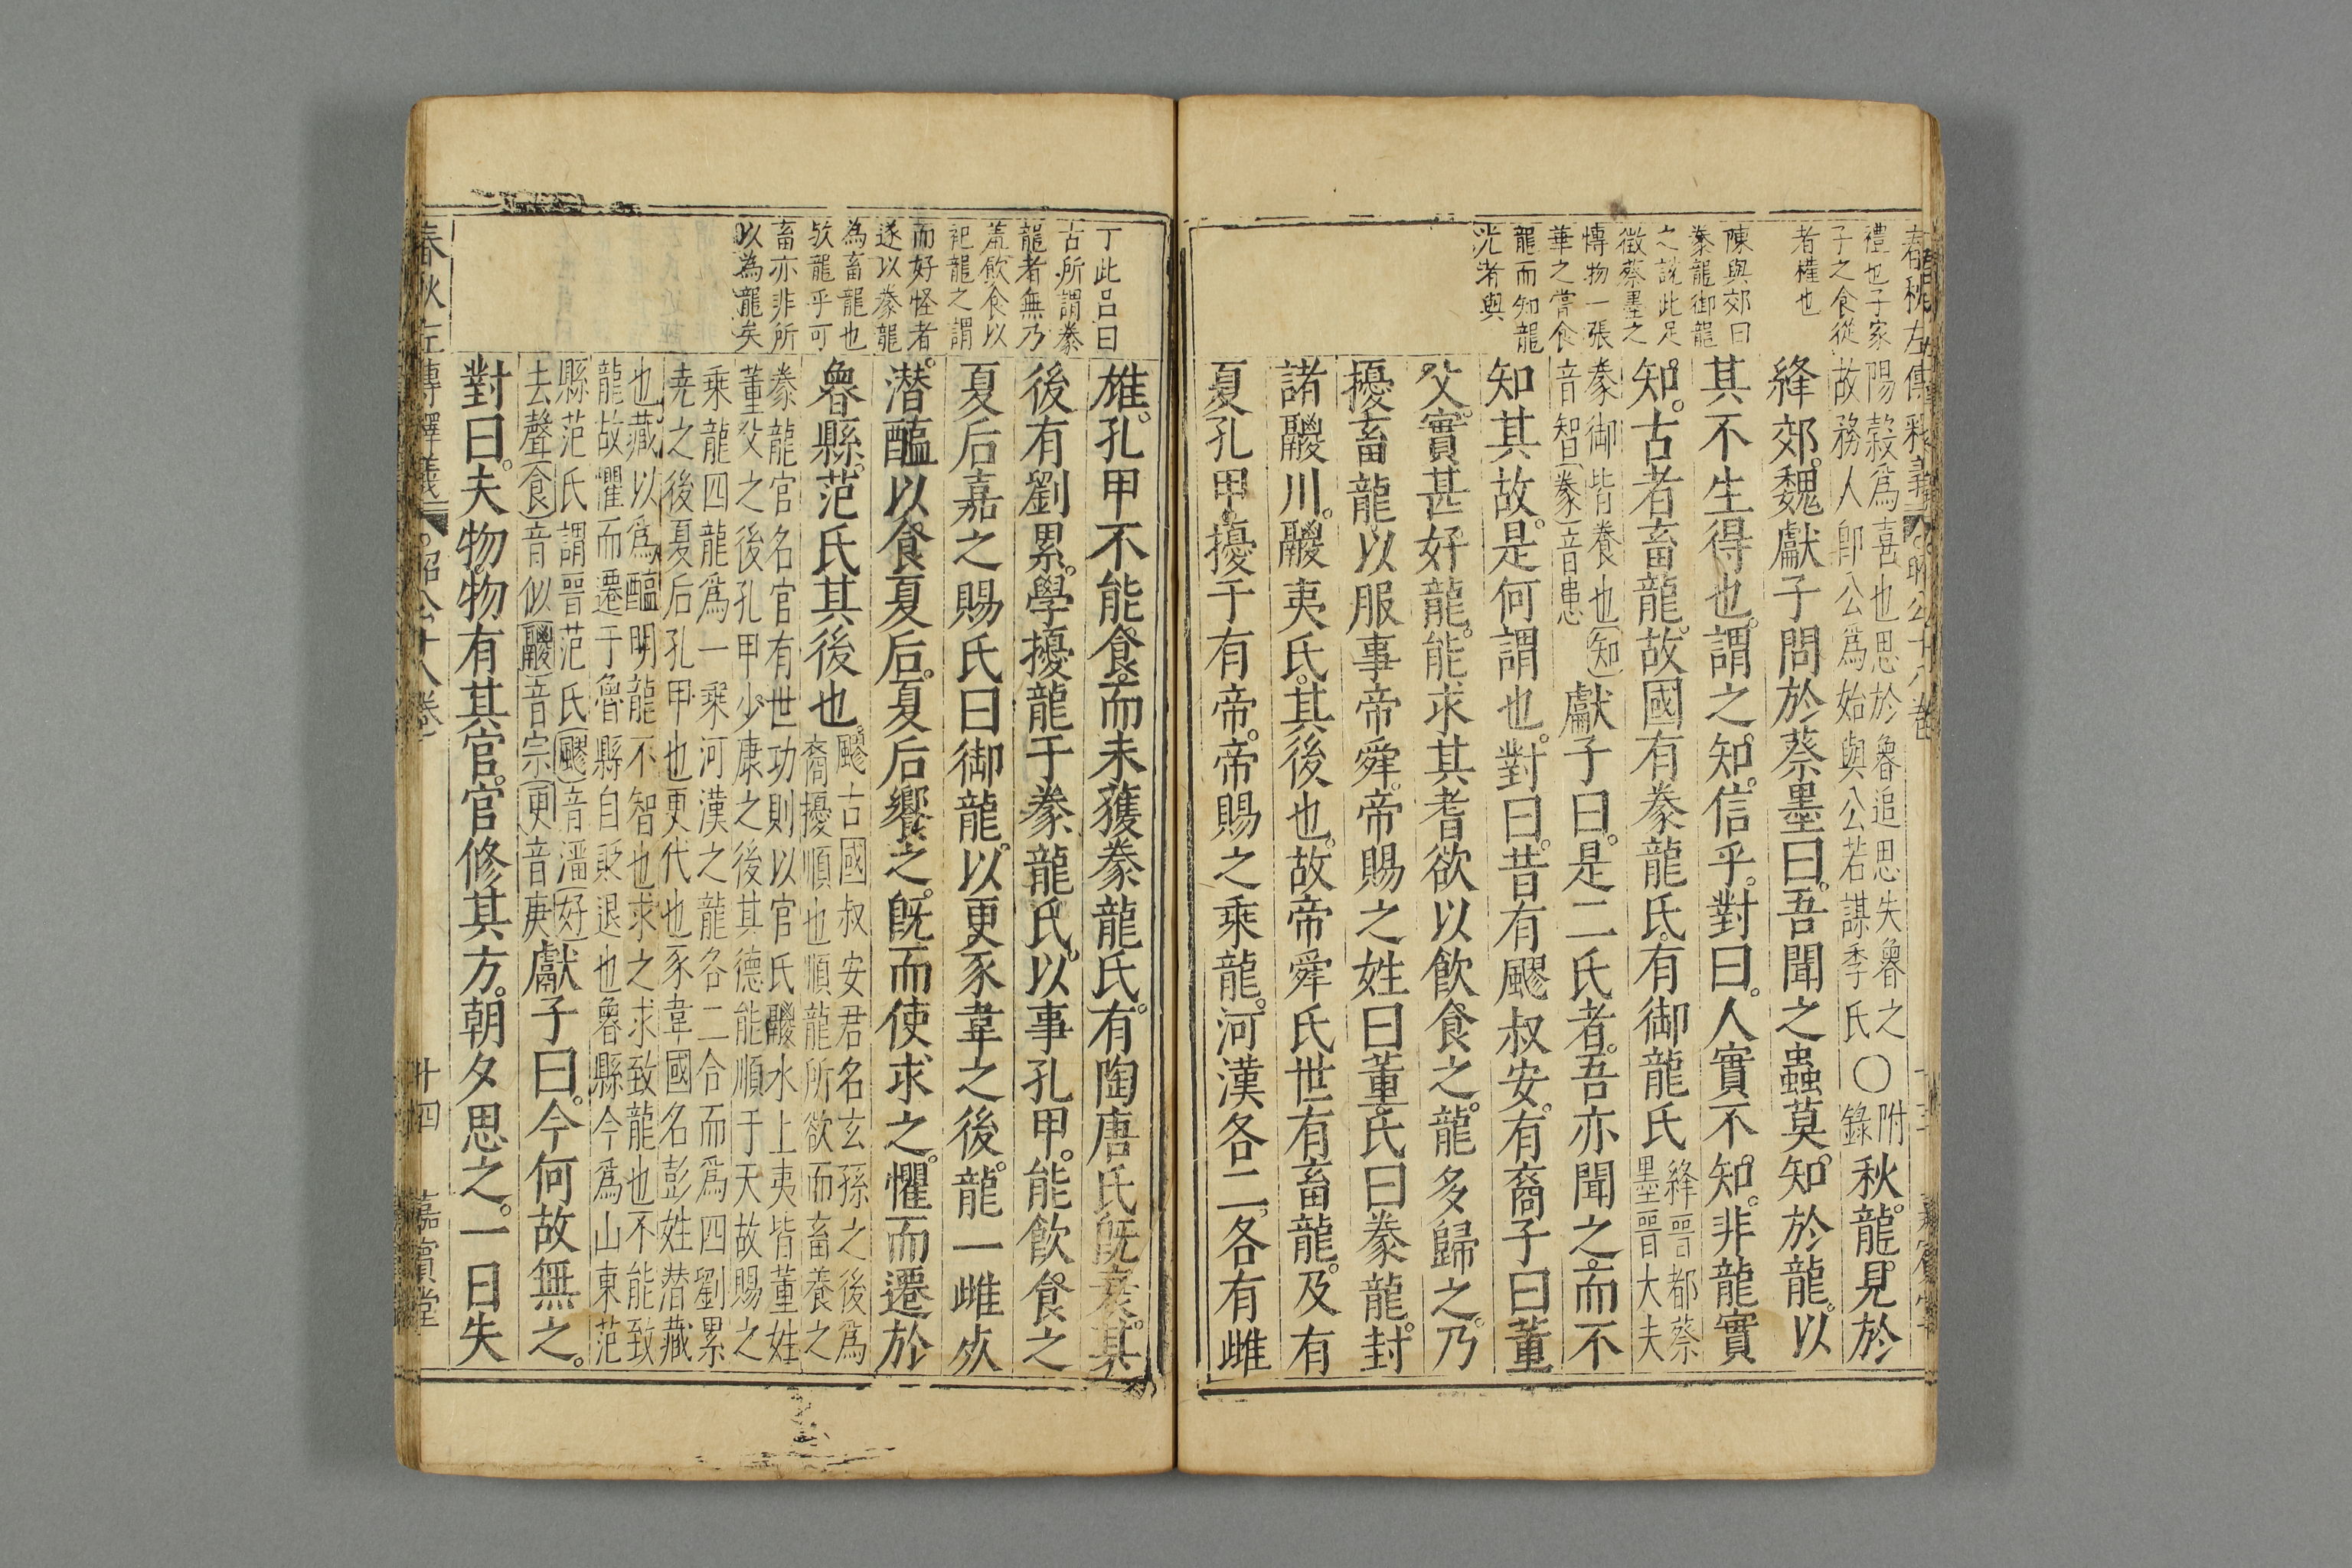 禮也子家
子之食從
者權也
陳與郊曰
豢龍御龍
之說此足
徵蔡墨之
慱物一張
華之嘗食
龍而知龍
光者與
陽穀爲喜也思於魯追思失魯之
故務人卽公爲始與公若謀季氏
〇附錄秋龍見於
絳郊魏獻子問於蔡墨曰吾聞之蟲莫知於龍以
其不生得也謂之知信乎對曰人實不知非龍實
知古者畜龍故國有豢龍氏有御龍氏絳晋都蔡墨晋大夫
豢御皆養也知音智豢音患獻子曰是二氏者吾亦聞之而不
知其故是何謂也對曰昔有飂叔安有裔子曰董
父實甚好龍能求其耆欲以飲食之龍多歸之乃
擾畜龍以服事帝舜帝賜之姓曰董氏曰豢龍封
諸鬷川鬷夷氏其後也故帝舜氏世有畜龍及有
夏孔甲擾于有帝帝賜之乘龍河漢各二各有雌
丁此呂曰
古所謂豢
龍者無乃
羞飲食以
祀龍之謂
而好怪者
遂以豢龍
為畜龍也
欤龍乎可
畜亦非所
以為龍矣
雄孔甲不能食而未獲豢龍氏有陶唐氏旣衰其
後有劉累學擾龍于豢龍氏以事孔甲能飲食之
夏后嘉之賜氏曰御龍以更豕韋之後龍一雌死
潜醢以食夏后夏后饗之旣而使求之懼而遷於
魯縣范氏其後也飂古國叔安君名玄孫之後爲裔擾順也順龍所欲而畜養之
豢龍官名官有世功則以官氏鬷水上夷皆董姓
董父之後孔甲少康之後其德能順于天故賜之
乘龍四龍爲一乘河漢之龍各二合而爲四劉累
尭之後夏后孔甲也更代也豕韋國名彭姓潜藏
也藏以爲醢明龍不智也求之求致龍也不能致
龍故懼而遷于魯縣自貶退也魯縣今爲山東范
縣范氏謂晋范氏飂音溜好
去聲食音似鬷音宗更音庚獻子曰今何故無之
對曰夫物物有其官官修其方朝夕思之一日失
春秋左傳釋義
昭公十八卷
十四
嘉賓堂